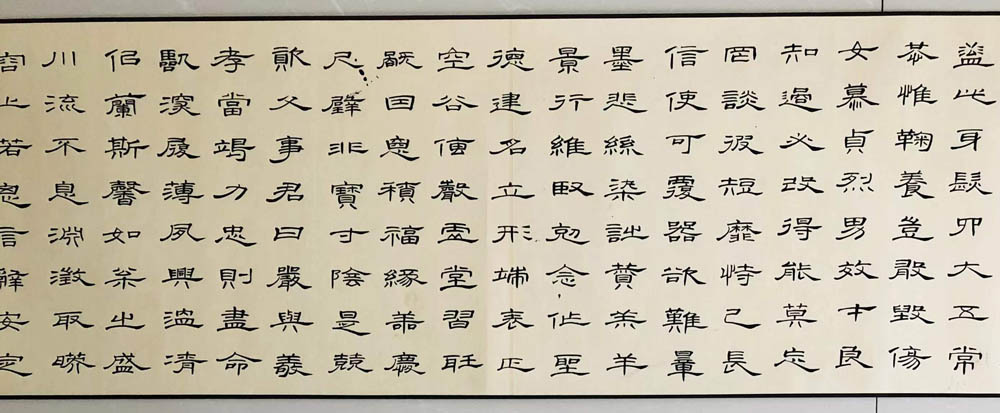 蓋此身髮四大五常
恭惟鞠養豈敢毀傷
女慕貞烈男效才良
知過必改得能莫忘
罔談彼短靡恃己長
信使可覆器欲難量
墨悲絲染詩贊羔羊
景行維賢克念作聖
德建名立形端表正
空谷傳聲虛堂習聽
禍因惡積福緣善慶
尺璧非寶寸陰是競
資父事君曰嚴與敬
孝當竭力忠則盡命
臨深履薄夙興溫凊
似蘭斯馨如松之盛
川流不息淵澄取映
容止若思言辭安定